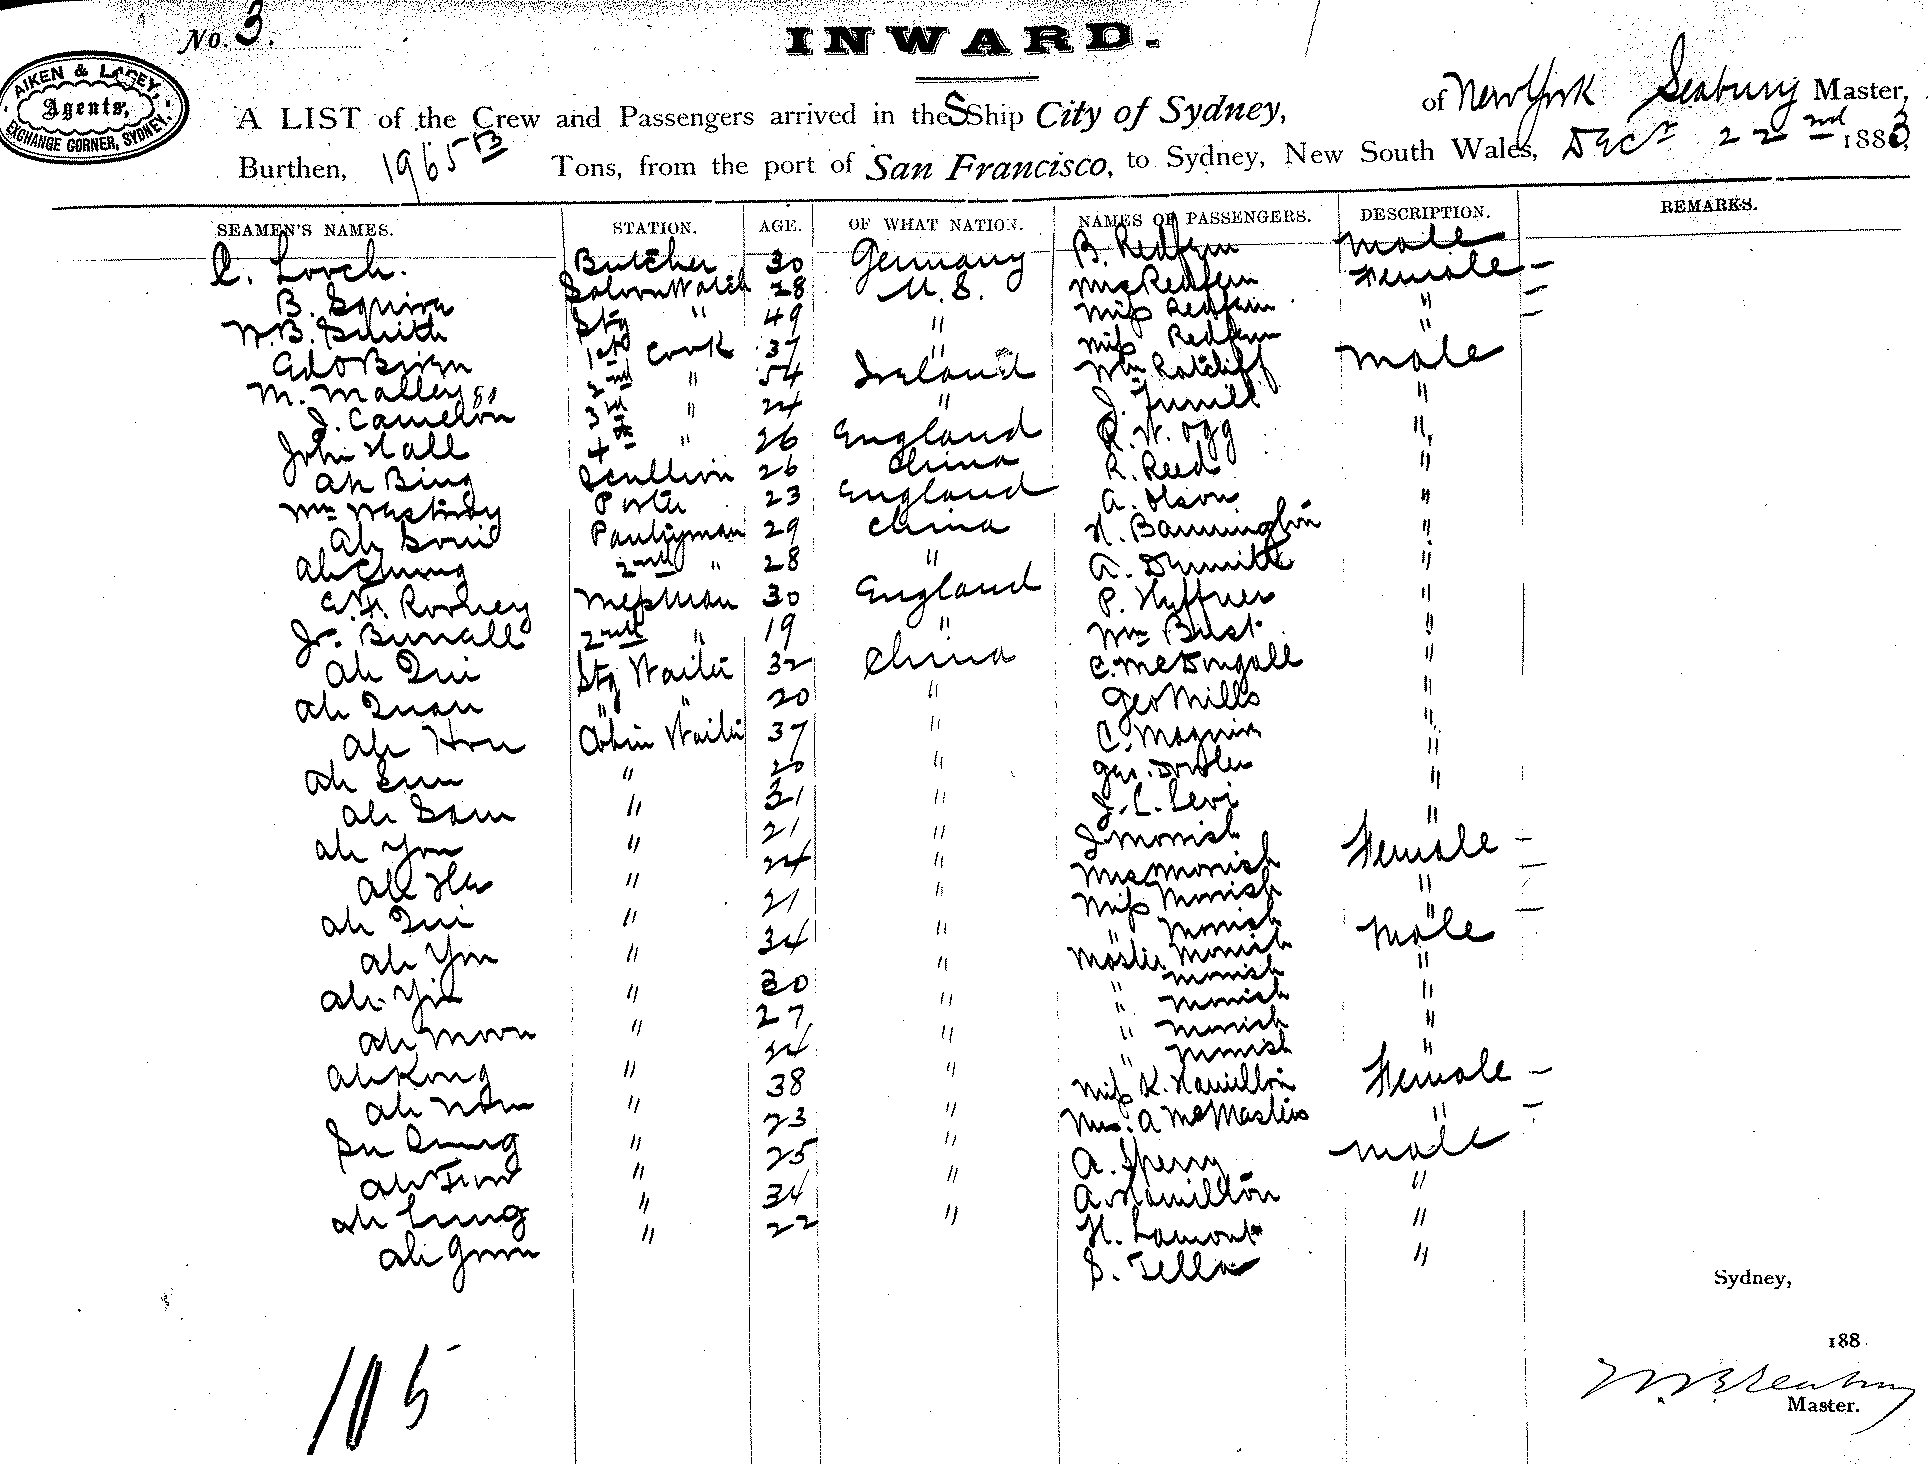 No. 3.
INWARD.
AIKEN & LACEY,
Agents,
EXCHANGE CORNER, SYDNEY.
A LIST of the Crew and Passengers arrived in the SShip City of Sydney, of New York Seabury Master,
Burthen, 1965 Tons, from the port of San Francisco, to Sydney, New South Wales, Decr 22nd 1883,
SEAMEN'S NAMES. STATION. AGE. OF WHAT NATION. NAMES OF PASSENGERS. DESCRIPTION. REMARKS.
C. Lorch. Butcher 30 Germany B. Redfern Male
B. Squire Saloon Watch 28 U.S. Mrs Redfern Female
W.B. Smith Stg " 49 " Miss Redfern "
Ed O Brien 1st Cook 37 " Miss Redfern "
M. Malley 2nd " 54 Ireland Wm Ratcliff Male
J. Camelon 3rd " 24 " J. "
John Hall 4th " 26 England R. W. Ogg "
Ah Bing Scullion 26 China R. Reed "
Wm Porter 23 England A. Olson "
Ah Pantryman 29 China H. Bannington "
Ah Chung 2nd " 28 " A. "
Messman 30 England P. Huffner "
Jr. 2nd " 19 " Wm Bust "
Ah Qui Stg Waiter 32 China C. McDougall "
Ah Quan " " 20 " Geo Mills "
Ah Hou Cabin Waiter 37 " C. Magnin "
Ah Sun " 20 " "
Ah Sam " 31 " J. L. Levi "
Ah You " 21 " J Monish "
Ah " 24 " Mrs Monish Female
Ah Qui " 21 " Miss Monish "
Ah You " 34 " " Monish "
Ah Yin " 30 " Master Monish Male
Ah Moon " 27 " " Monish "
Ah Kong " 24 " " Monish "
Ah Nam " 38 " " Monish "
Su Chung " 23 " " Monish "
Ah " 25 " Miss K. Hamilton Female
Ah Lung " 34 " Mrs. A McMasters "
Ah Goon " 22 " A. Sperry Male
A. Hamilton "
H. Lamont "
S. Tella "
105
Sydney,
188
Master.